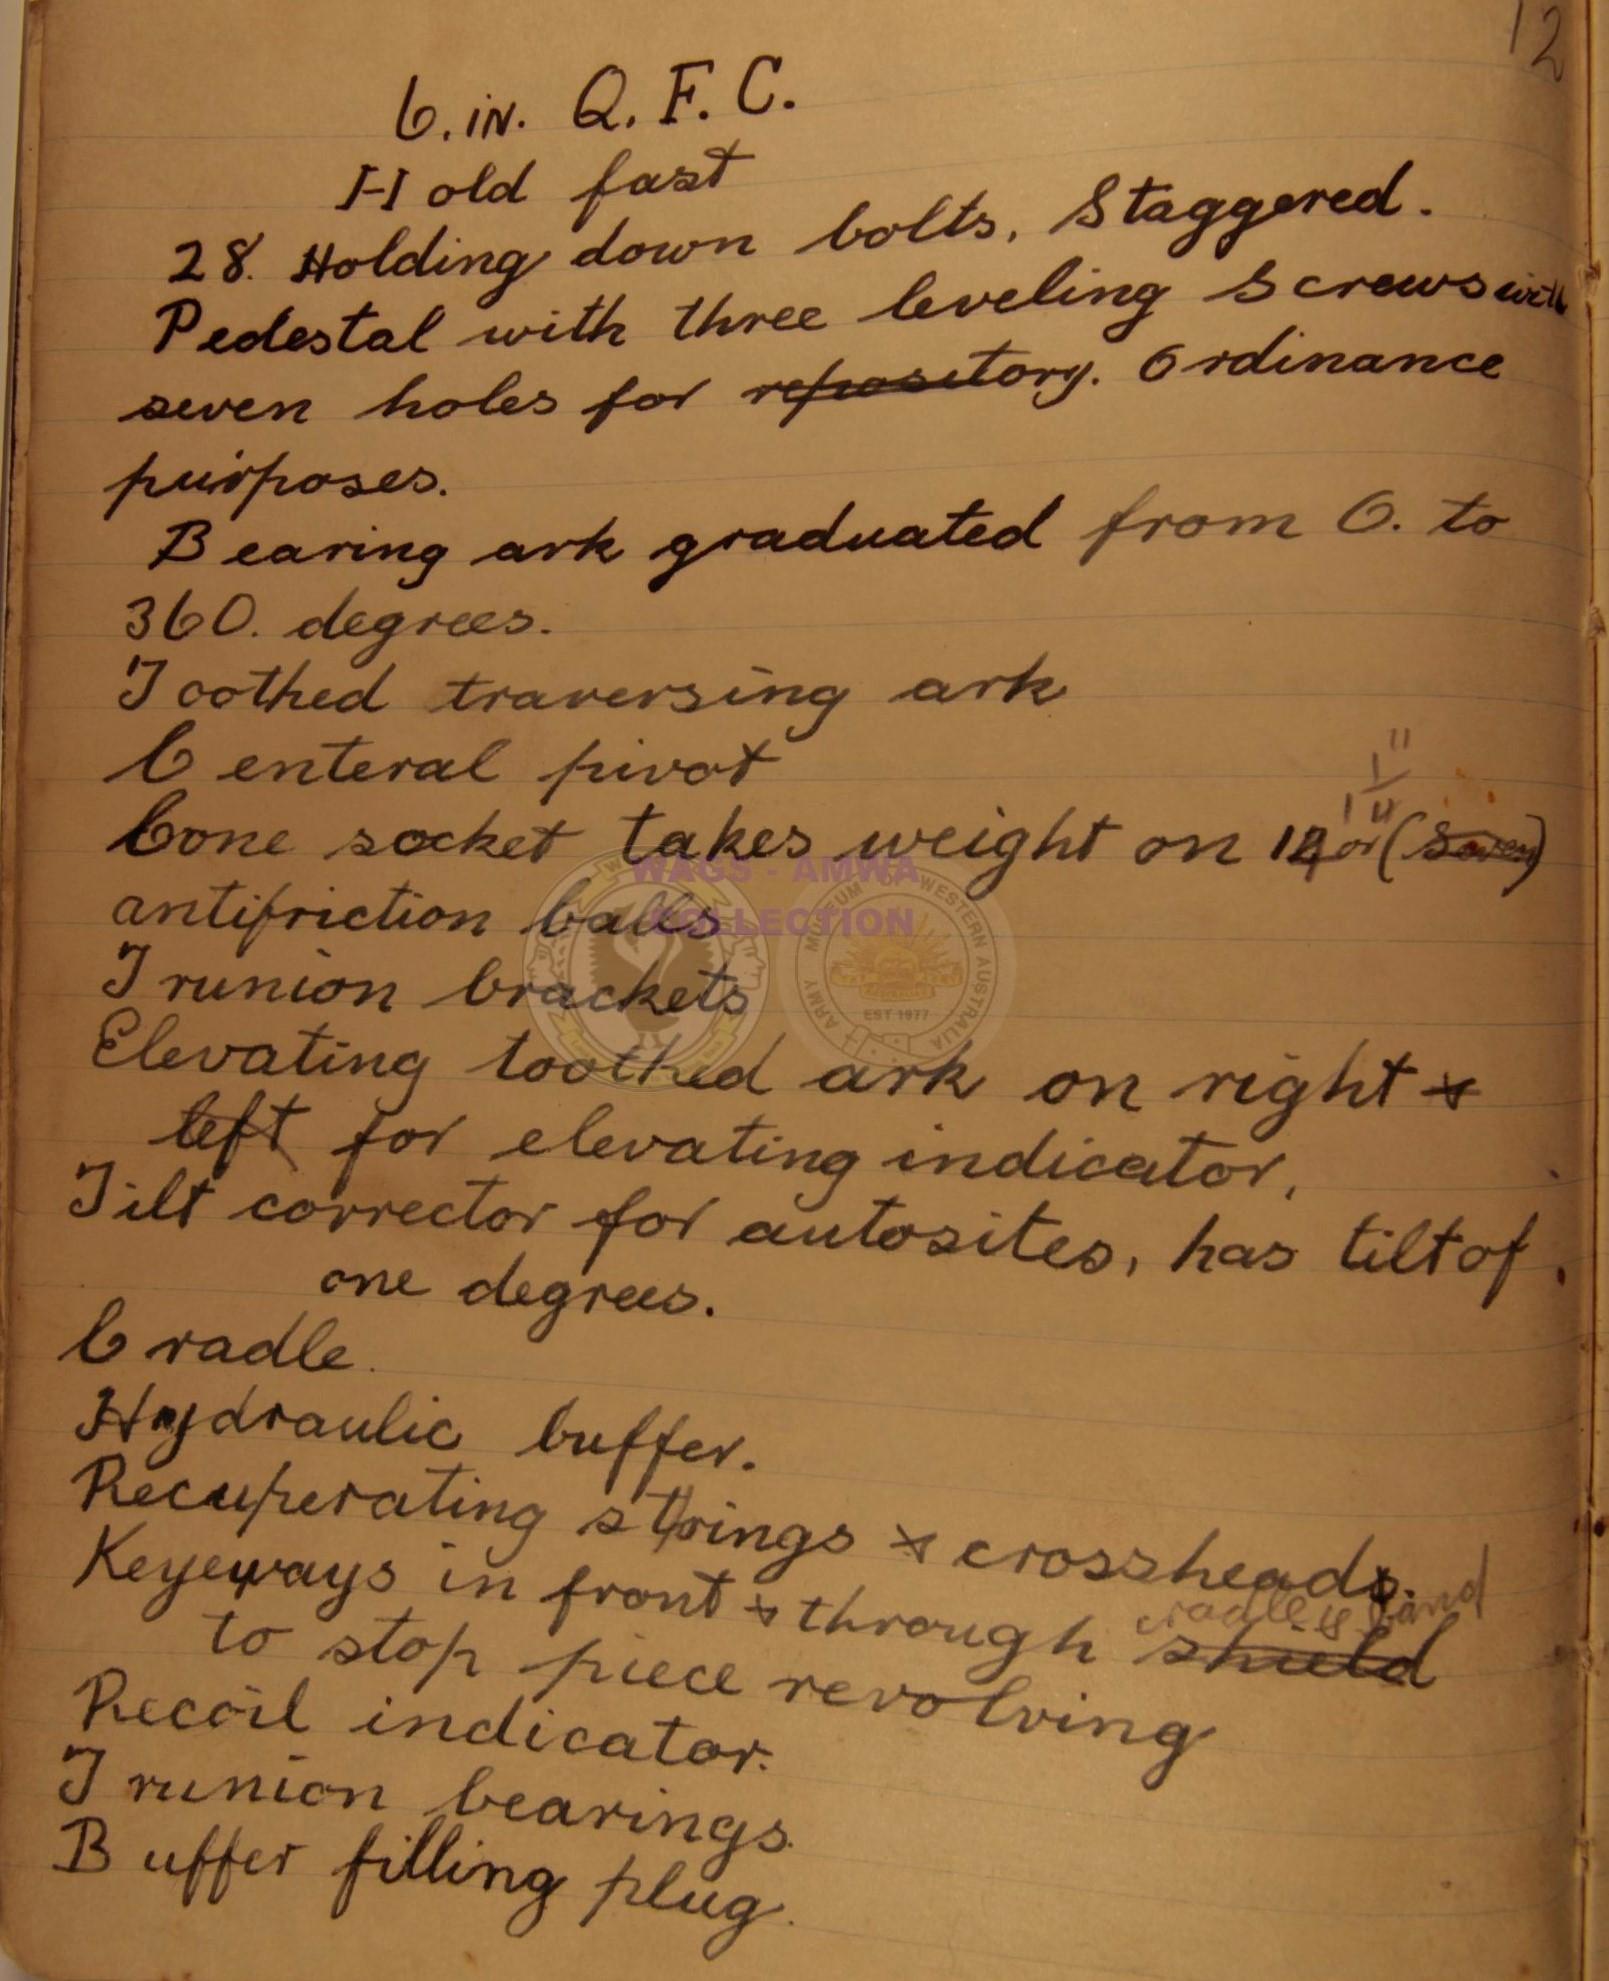 12
6. in. Q. F. C.
Hold fast
28. Holding down bolts, Staggered.
Pedestal with three leveling screws with
seven holes for repository. Ordinance
purposes.
Bearing ark graduated from 0. to
360. degrees.
Toothed traversing ark
Centeral pivot
1 1/4"
Cone socket takes weight on 12 or (Seven)
antifriction balls
Trunion brackets
Elevating toothed ark on right &
left for elevating indicator,
Tilt corrector for autosites, has tilt of
one degrees.
Cradle.
Hydraulic buffer.
Recuperating strings & crossheads.
cradle & band
Keyeways in front & through shield
to stop piece revolving
Recoil indicator.
Trunion bearings.
Buffer filling plug.
WAGS - AMWA
COLLECTION
ARMY MUSEUM OF WESTERN AUSTRALIA
EST 1977